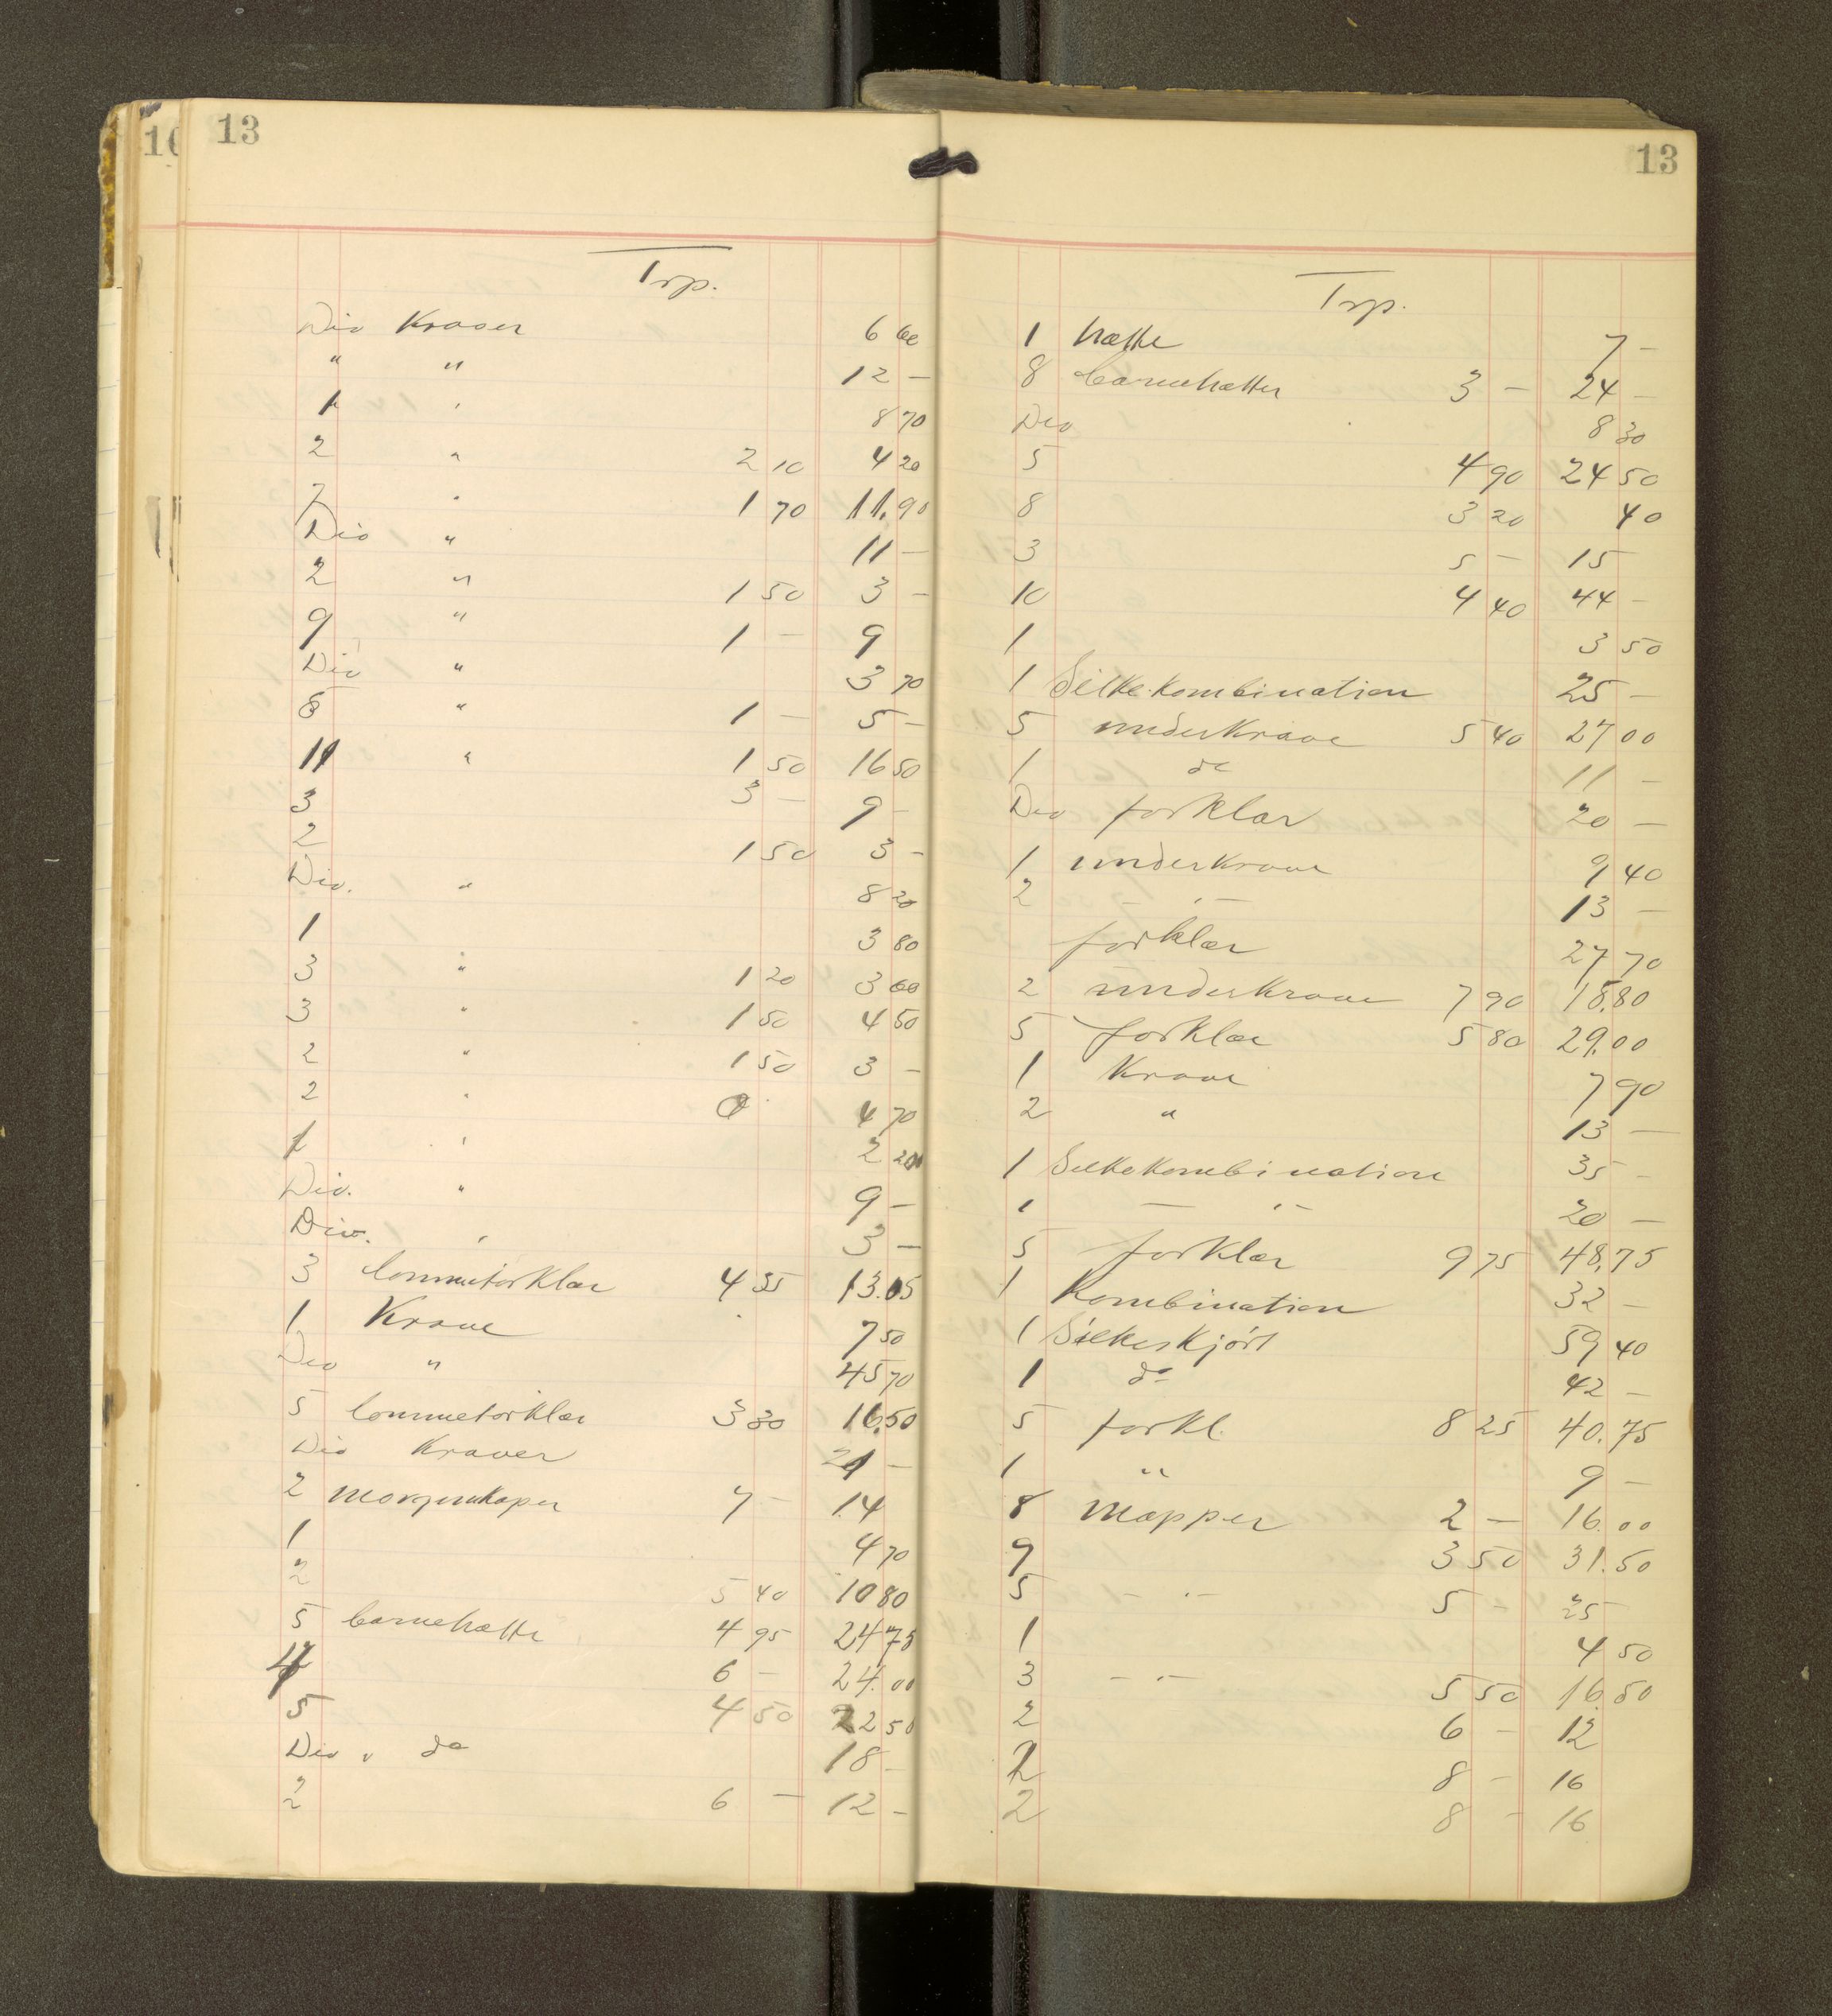 10 13
Trp.
Div Kraver 6 60
" " 12 —
1 " 8 70
2 " 2 10 4 20
7 " 1 70 11.90
Div " 11 —
2 " 1 50 3 —
9 " 1 — 9
Div " 3 70
5 " 1 — 5 —
11 " 1 50 16 50
3 3 — 9 —
2 1 50 3 —
Div. " 8 20
1 3 80
3 " 1 20 3 60
3 " 1 50 4 50
2 " 1 50 3 —
2 " 4 70
1 " 2 20
Div. " 9 —
Div. " 3 —
3 lommetørklær 4 35 13.05
1 Krave 7 50
Div " 45 70
5 lommetørklær 3 30 16.50
Div Kraver 21 —
2 morgenkaper 7 — 14
1 4 70
2 5 40 10 80
5 barnehætte 4 95 24 75
4 6 — 24.00
5 4 50 22 50
Div " do 18 —
2 6 — 12 —
13
Trp.
1 hætte 7 —
8 barnehætter 3 — 24 —
Div 8 30
5 4 90 24 50
8 3 20 40
3 5 — 15
10 4 40 44 —
1 3 50
1 Silkekombination 25 —
5 underkrave 5 40 27 00
1 do 11 —
Div forklær 20 —
1 underkrave 9 40
2 — " — 13 —
forklær 27 70
2 underkrave 7 90 15.80
5 forklær 5 80 29.00
1 Krave 7 90
2 " 13 —
1 Silkekombination 35 —
1 — " — 20 —
5 forklær 9 75 48.75
1 Kombination 32 —
1 Silkeskjørt 59 40
1 do 42 —
5 forkl. 8 25 40.75
1 " 9 —
8 Mapper 2 — 16.00
9 3 50 31.50
5 — " — 5 — 25
1 4 50
3 — " — 5 50 16.50
2 6 — 12
2 8 — 16
2 8 — 16